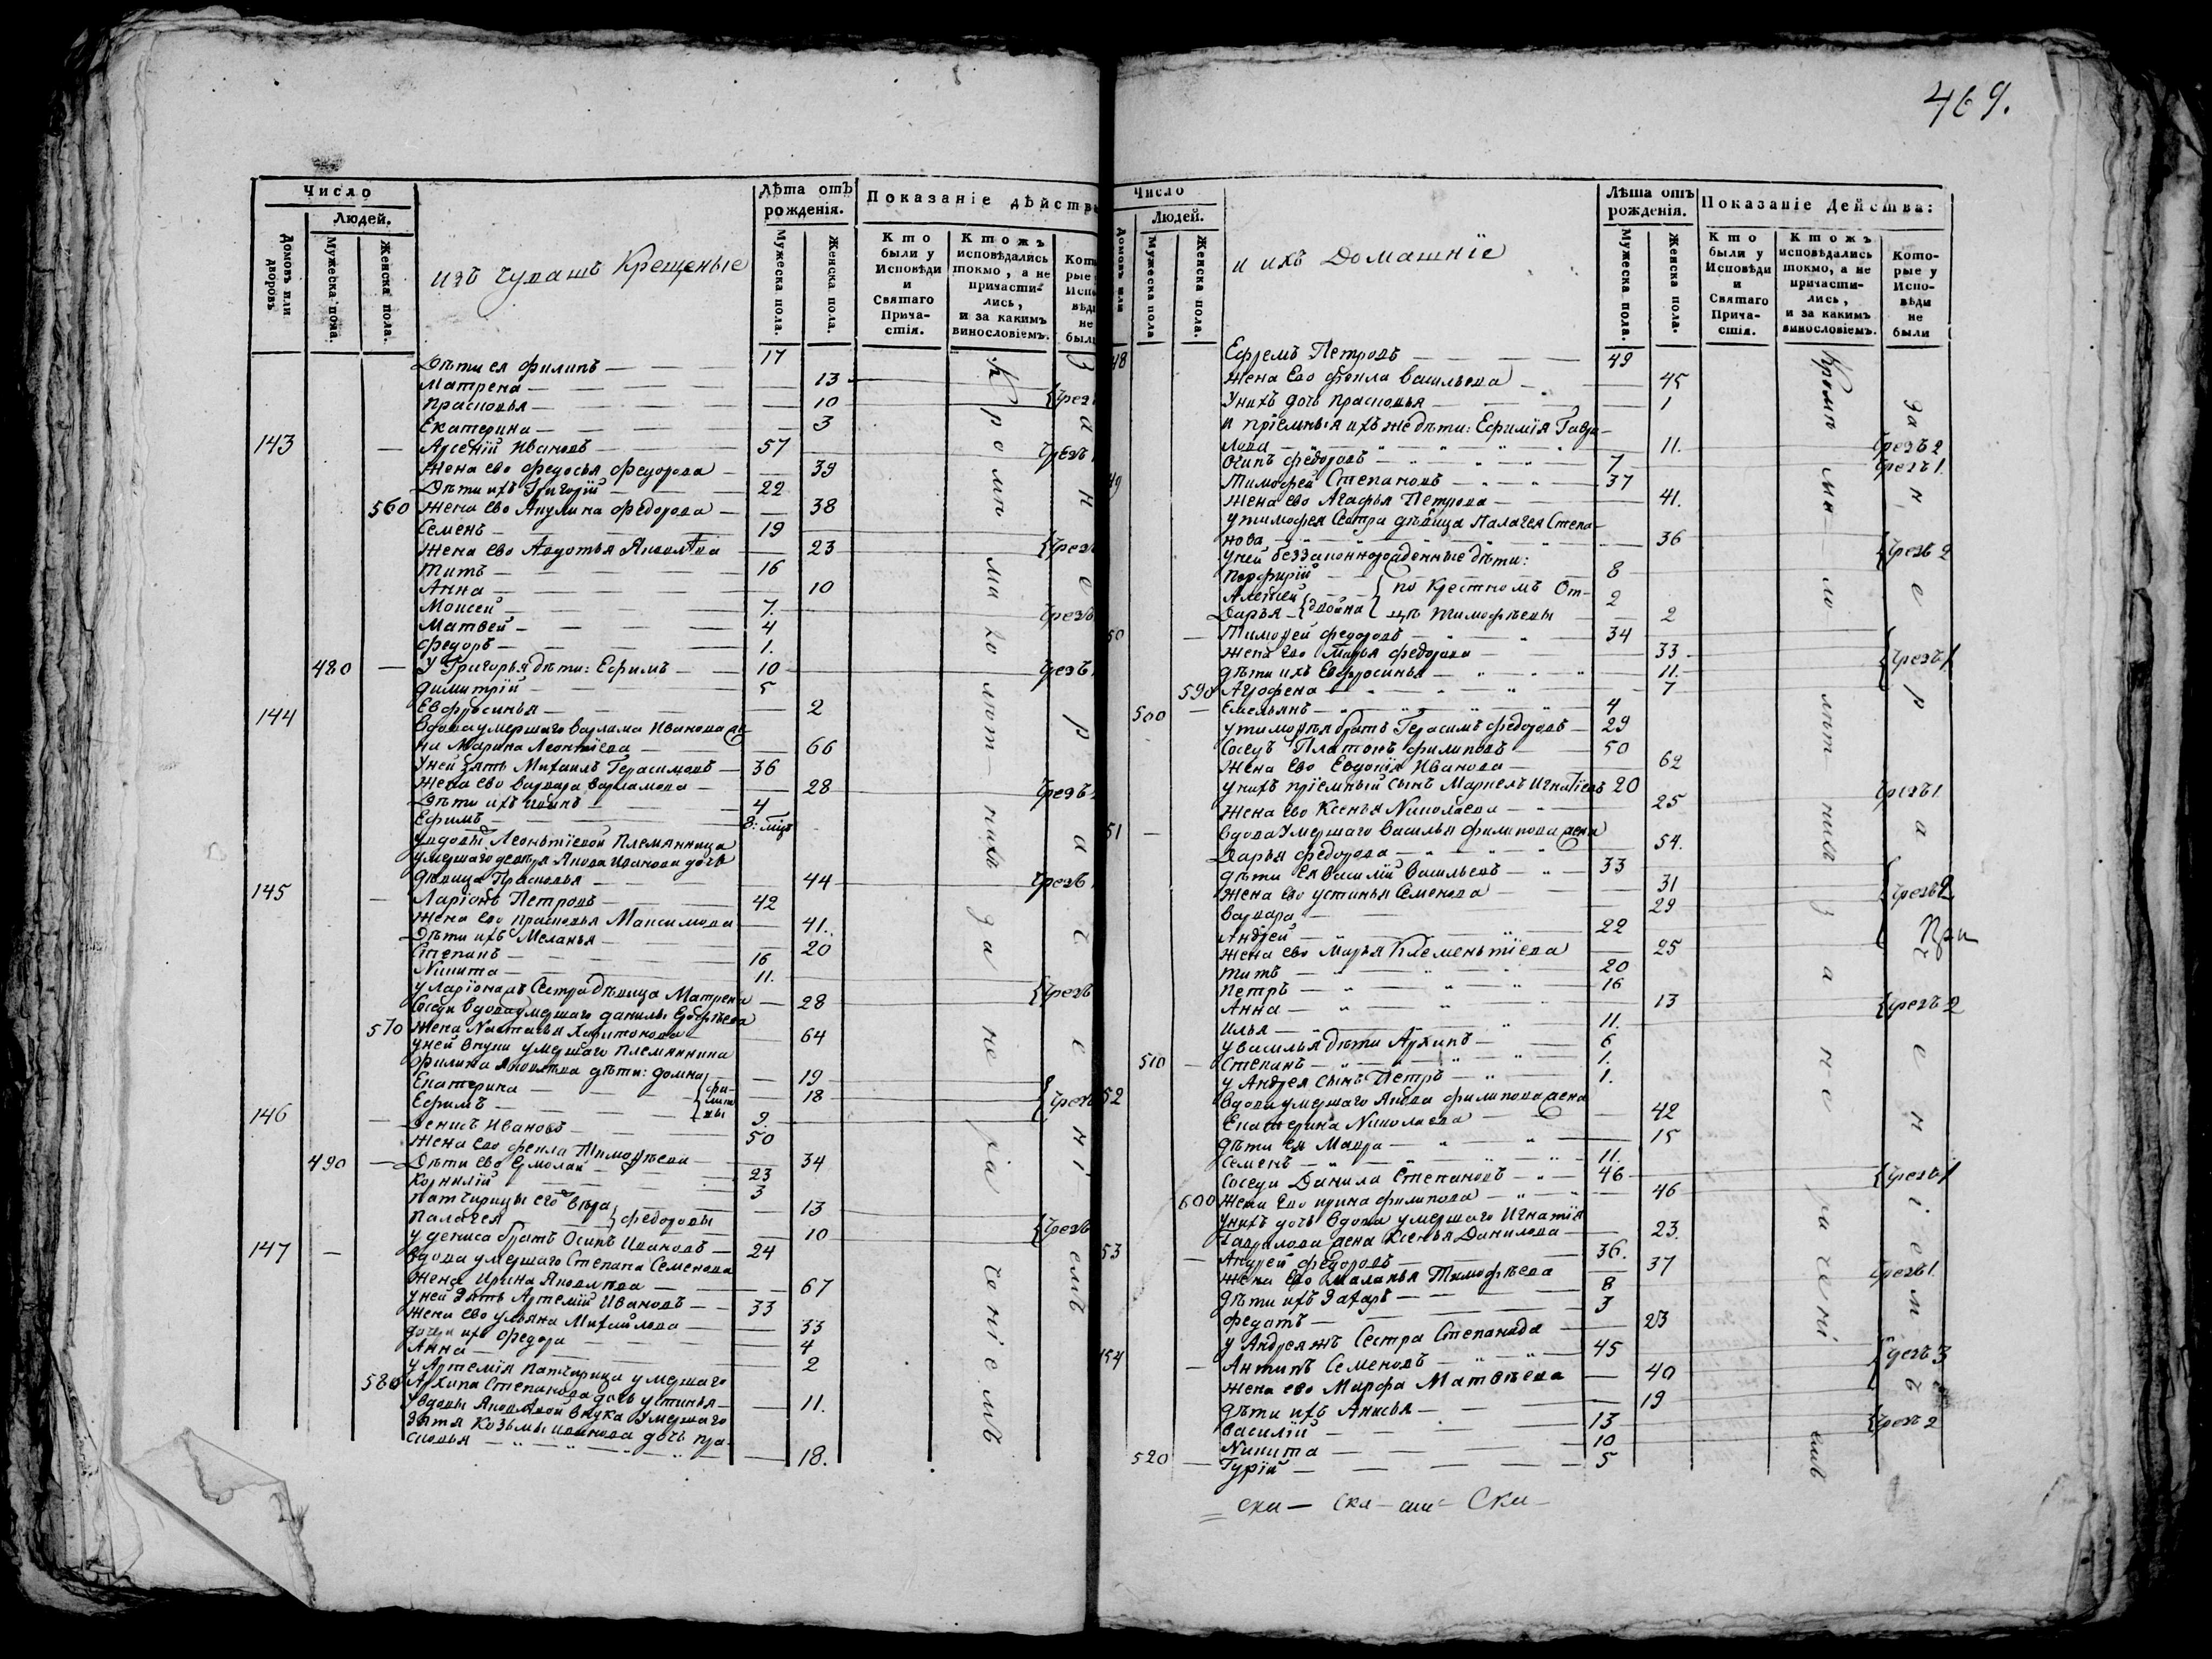 469.
Число
Людей.
Домовъ или дворовъ
Мужеска пола.
Женска пола.
изъ чувашъ Крещеные
Лѣта отъ рожденія.
Мужеска пола.
Женска пола.
Показаніе дѣйств
Кто были у Исповѣди и Святаго Прича-стія.
Кто жъ исповѣдались токмо, а не причасти-лись, и за какимъ винословіемъ.
Дѣти ея Филипъ — 17
Матрена — 13
Прасковья — 10
Екатерина — 3
143 — Арсеній Ивановъ — 57
Жена ево Федосья Федорова — 39
Дѣти ихъ Григорій — 22
560 Жена ево Акулина Федорова — 38
Семенъ — 19
Жена ево Авдотья Яковлѣва — 23
Титъ — 16
Анна — 10
Моисей — 7.
Матвей — 4
Федоръ — 1.
480 — У Григорья дѣти: Ефимъ — 10
Димитрій — 5
Евфросинья — 2
144 Вдова умершаго Варлама Иванова же-
на Марина Леонтіева — 66
У ней зять Михаилъ Герасимовъ — 36
Жена ево Варвара Варламова — 28
Дѣти ихъ — 4
Ефимъ — 8: мѣц
У вдовы Леонтіевой Племянница
умершаго деверя Якова Иванова дочь
дѣвица Прасковья — 44
145 — Ларіонъ Петровъ — 42
Жена ево Прасковья Максимова — 41.
Дѣти ихъ Меланья — 20
Степанъ — 16
Никита — 11.
У Ларіона Сестра дѣвица Матрена — 28
Соседи вдова умершаго Данилы
570 Жена Настасья Харитонова — 64
У ней внуки умершаго Племянника
Филипа Яковлѣва дѣти: Домна — 19
Екатерина — 18
Ефимъ — 9.
146 — Денисъ Ивановъ — 50
Жена ево Фекла Тимофѣева — 34
490 — Дѣти ево Ермолай — 23
Корнилій — 3
Патчирицы его Вѣра — 13
Палагея } Федоровы — 10
У Дениса братъ Осипъ Ивановъ — 24
147 — Вдова умершаго Степана Семенова
Жена Ирина Яковлѣва — 67
У ней зять Артемій Ивановъ — 33
Жена ево Ульяна Михайлова — 33
Дочери ихъ Федора — 4
Анна — 2
У Артемія патчирица умершаго
580 Архипа Степанова дочь Устинья — 11.
У вдовы Яковлѣвой внука умершаго
зятя Козьмы Иванова дочь Пра-
сковья — 18.
Кромѣ малолѣтнихъ за не раченіемъ
За нераченіемъ
Число
Людей.
Домовъ или
Мужеска пола
Женска пола.
и ихъ Домашніе
Лѣта отъ рожденія.
Мужеска пола.
Женска пола.
Показаніе Действа:
Кто были у Исповѣди и Святаго Прича-стія.
Кто жъ исповѣдались токмо, а не причасти-лись, и за какимъ винословіемъ.
Кото-рые у Испо-вѣди не были
48 Ефремъ Петровъ — 49
Жена ево Фекла Васильева — 45
У нихъ дочь Прасковья — 1
и пріемныя ихъ же дѣти: Ефимія Гаври-
лова — 11. Чрезъ 2
Осипъ Федоровъ — 7 Чрезъ 1.
49 Тимофей Степановъ — 37
Жена ево Агафья Петрова — 41.
У Тимофея Сестра дѣвица Палагея Степа-
нова — 36
У ней беззаконнорожденные дѣти: Чрезъ 2
Порфирій — 8
Алексей } двойна } по Крестномъ От- 2
Дарья — цѣ Тимофѣевы — 2
50 — Тимофей Федоровъ — 34
Жена ево Марья Федорова — 33
Дѣти ихъ Евфросинья — 11. Чрезъ 1
590 Агрофена — 7
500 — Емельянъ — 4
У Тимофѣя братъ Герасимъ Федоровъ — 29
Соседъ Платонъ Филиповъ — 50
Жена ево Евдокія Иванова — 62
У нихъ пріемный сынъ Маркелъ Игнатіевъ 20
Жена ево Ксенья Николаева — 25 Чрезъ 1
51 — Вдова умершаго Василья Филипова жена
Дарья Федорова — 54.
Дѣти ея Василій Васильевъ — 33
Жена ево Устинья Семенова — 31 Чрезъ 2
Варвара — 29
Андрей — 22
Жена ево Марья Клементіева — 25
Титъ — 20
Петръ — 16
Анна — 13
Илья — 11. Чрезъ 2
У Василья дѣти Архипъ — 6
510 — Степанъ — 1.
У Андрея сынъ Петръ — 1.
52 Вдова умершаго Якова Филипова жена
Екатерина Николаева — 42
Дѣти ея Мавра — 15
Семенъ — 11.
Соседи Данила Степановъ — 46 Чрезъ 1
600 Жена ево Ирина Филипова — 46
У нихъ дочь вдова умершаго Игнатія
Гаврилова жена Ксенья Данилова — 23.
53 — Андрей Федоровъ — 36.
Жена ево Маланья Тимофѣева — 37
Дѣти ихъ Захаръ — 8 Чрезъ 1.
Федотъ — 3
У Андрея жъ Сестра Степанида — 23
154 — Антипъ Семеновъ — 45
Жена ево Марфа Матвѣева — 40
Дѣти ихъ Анисья — 19
Василій — 13 Чрезъ 2
Никита — 10
520 — Гурій — 5
Кромѣ малолѣтнихъ за не раченіемъ
За нераченіемъ